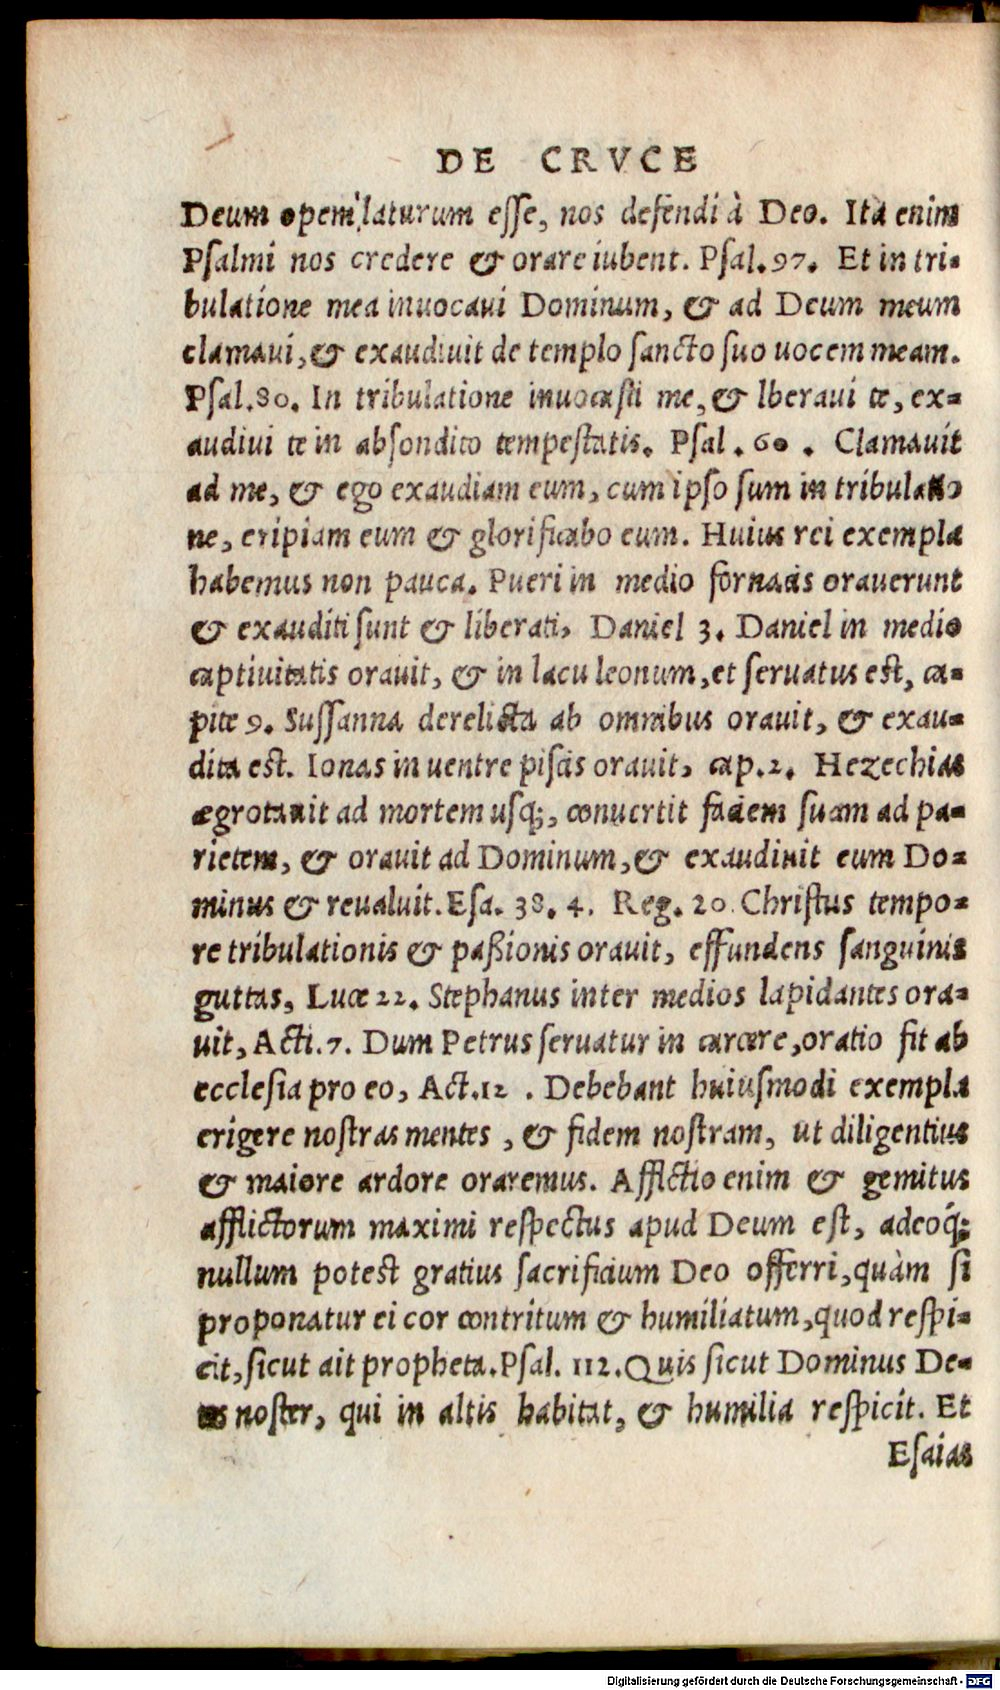 DE CRVCE
Deum opem laturum eſſe, nos defendi à Deo. Ita enim
Pſalmi nos credere & orare iubent. Pſal. 97. Et in tri-
bulatione mea inuocaui Dominum, & ad Deum meum
clamaui, & exaudiuit de templo ſancto ſuo uocem meam.
Pſal. 80. In tribulatione inuocaſti me, & lberaui te, ex-
audiui te in abſondito tempeſtatis. Pſal. 60. Clamauit
ad me, & ego exaudiam eum, cum ipſo ſum in tribulatio
ne, eripiam eum & glorificabo eum. Huius rei exempla
habemus non pauca. Pueri in medio fornacis orauerunt
& exauditi ſunt & liberati, Daniel 3. Daniel in medio
captiuitatis orauit, & in lacu leonum, et ſeruatus eſt, ca-
pite 9. Suſſanna derelicta ab omnibus orauit, & exau-
dita eſt. Ionas in uentre piſcis orauit, cap. 2. Hezechias
ægrotauit ad mortem uſq;, conuertit faciem ſuam ad pa-
rietem, & orauit ad Dominum, & exaudiuit eum Do-
minus & reualuit. Eſa. 38. 4. Reg. 20. Chriſtus tempo-
re tribulationis & paßionis orauit, effundens ſanguinis
guttas, Lucæ 22. Stephanus inter medios lapidantes ora-
uit, Acti. 7. Dum Petrus ſeruatur in carcere, oratio fit ab
eccleſia pro eo, Act. 12. Debebant huiuſmodi exempla
erigere noſtras mentes, & fidem noſtram, ut diligentius
& maiore ardore oraremus. Afflictio enim & gemitus
afflictorum maximi reſpectus apud Deum eſt, adeoq́;
nullum poteſt gratius ſacrificium Deo offerri, quàm ſi
proponatur ei cor contritum & humiliatum, quod reſpi-
cit, ſicut ait propheta. Pſal. 112. Quis ſicut Dominus De-
us noſter, qui in altis habitat, & humilia reſpicit. Et
Eſaias
Digitalisierung gefördert durch die Deutsche Forschungsgemeinschaft - DFG